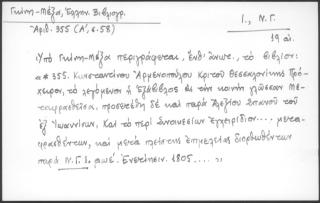 Γκίνη-Μέξα, Ἑλλην. Βιβλιογρ.
Ἀριθ. 355 (Α', σ. 58)
Ι., Ν.Γ.
19 αἰ.
Ὑπό Γκίνη-Μέξα περιγράφεται, ἔνθ' ἀνωτ., τό βιβλίον:
«* 355. Κωνσταντίνου Ἁρμενοπούλου Κριτοῦ Θεσσαλονίκης Πρό
χειρον, τό λεγόμενον ἡ Ἑξάβιβλος εἰς τήν κοινήν γλῶσσαν με
ταφρασθεῖσα, προσετέθη δέ καί παρά Ἀλεξίου Σπανοῦ τοῦ
ἐξ Ἰωαννίνων, καί τό περί Συνοικεσίων ἐγχειρίδιον.... μετα
φρασθέντων, καί μετά πλείστης ἐπιμελείας διορθωθέντων
παρά Ν.Γ.Ι. αωέ. Ἐνετίησιν. 1805.....»